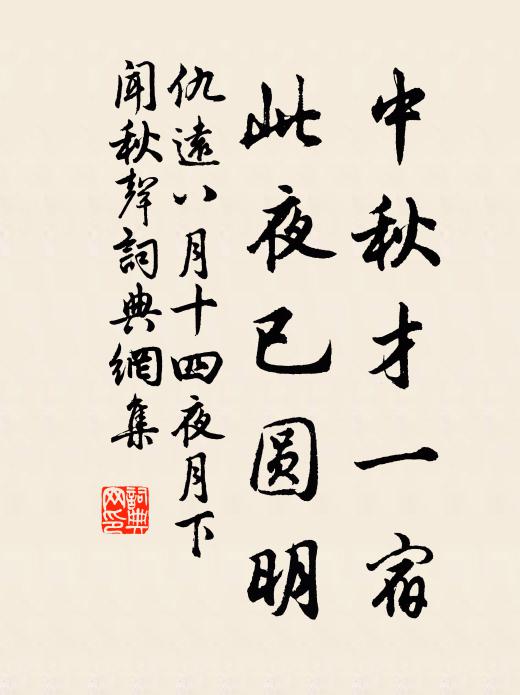 中秋才一宿
此夜已圆明
仇遠八月十四夜月下
闻秋聲詞典網集
詞典
网印